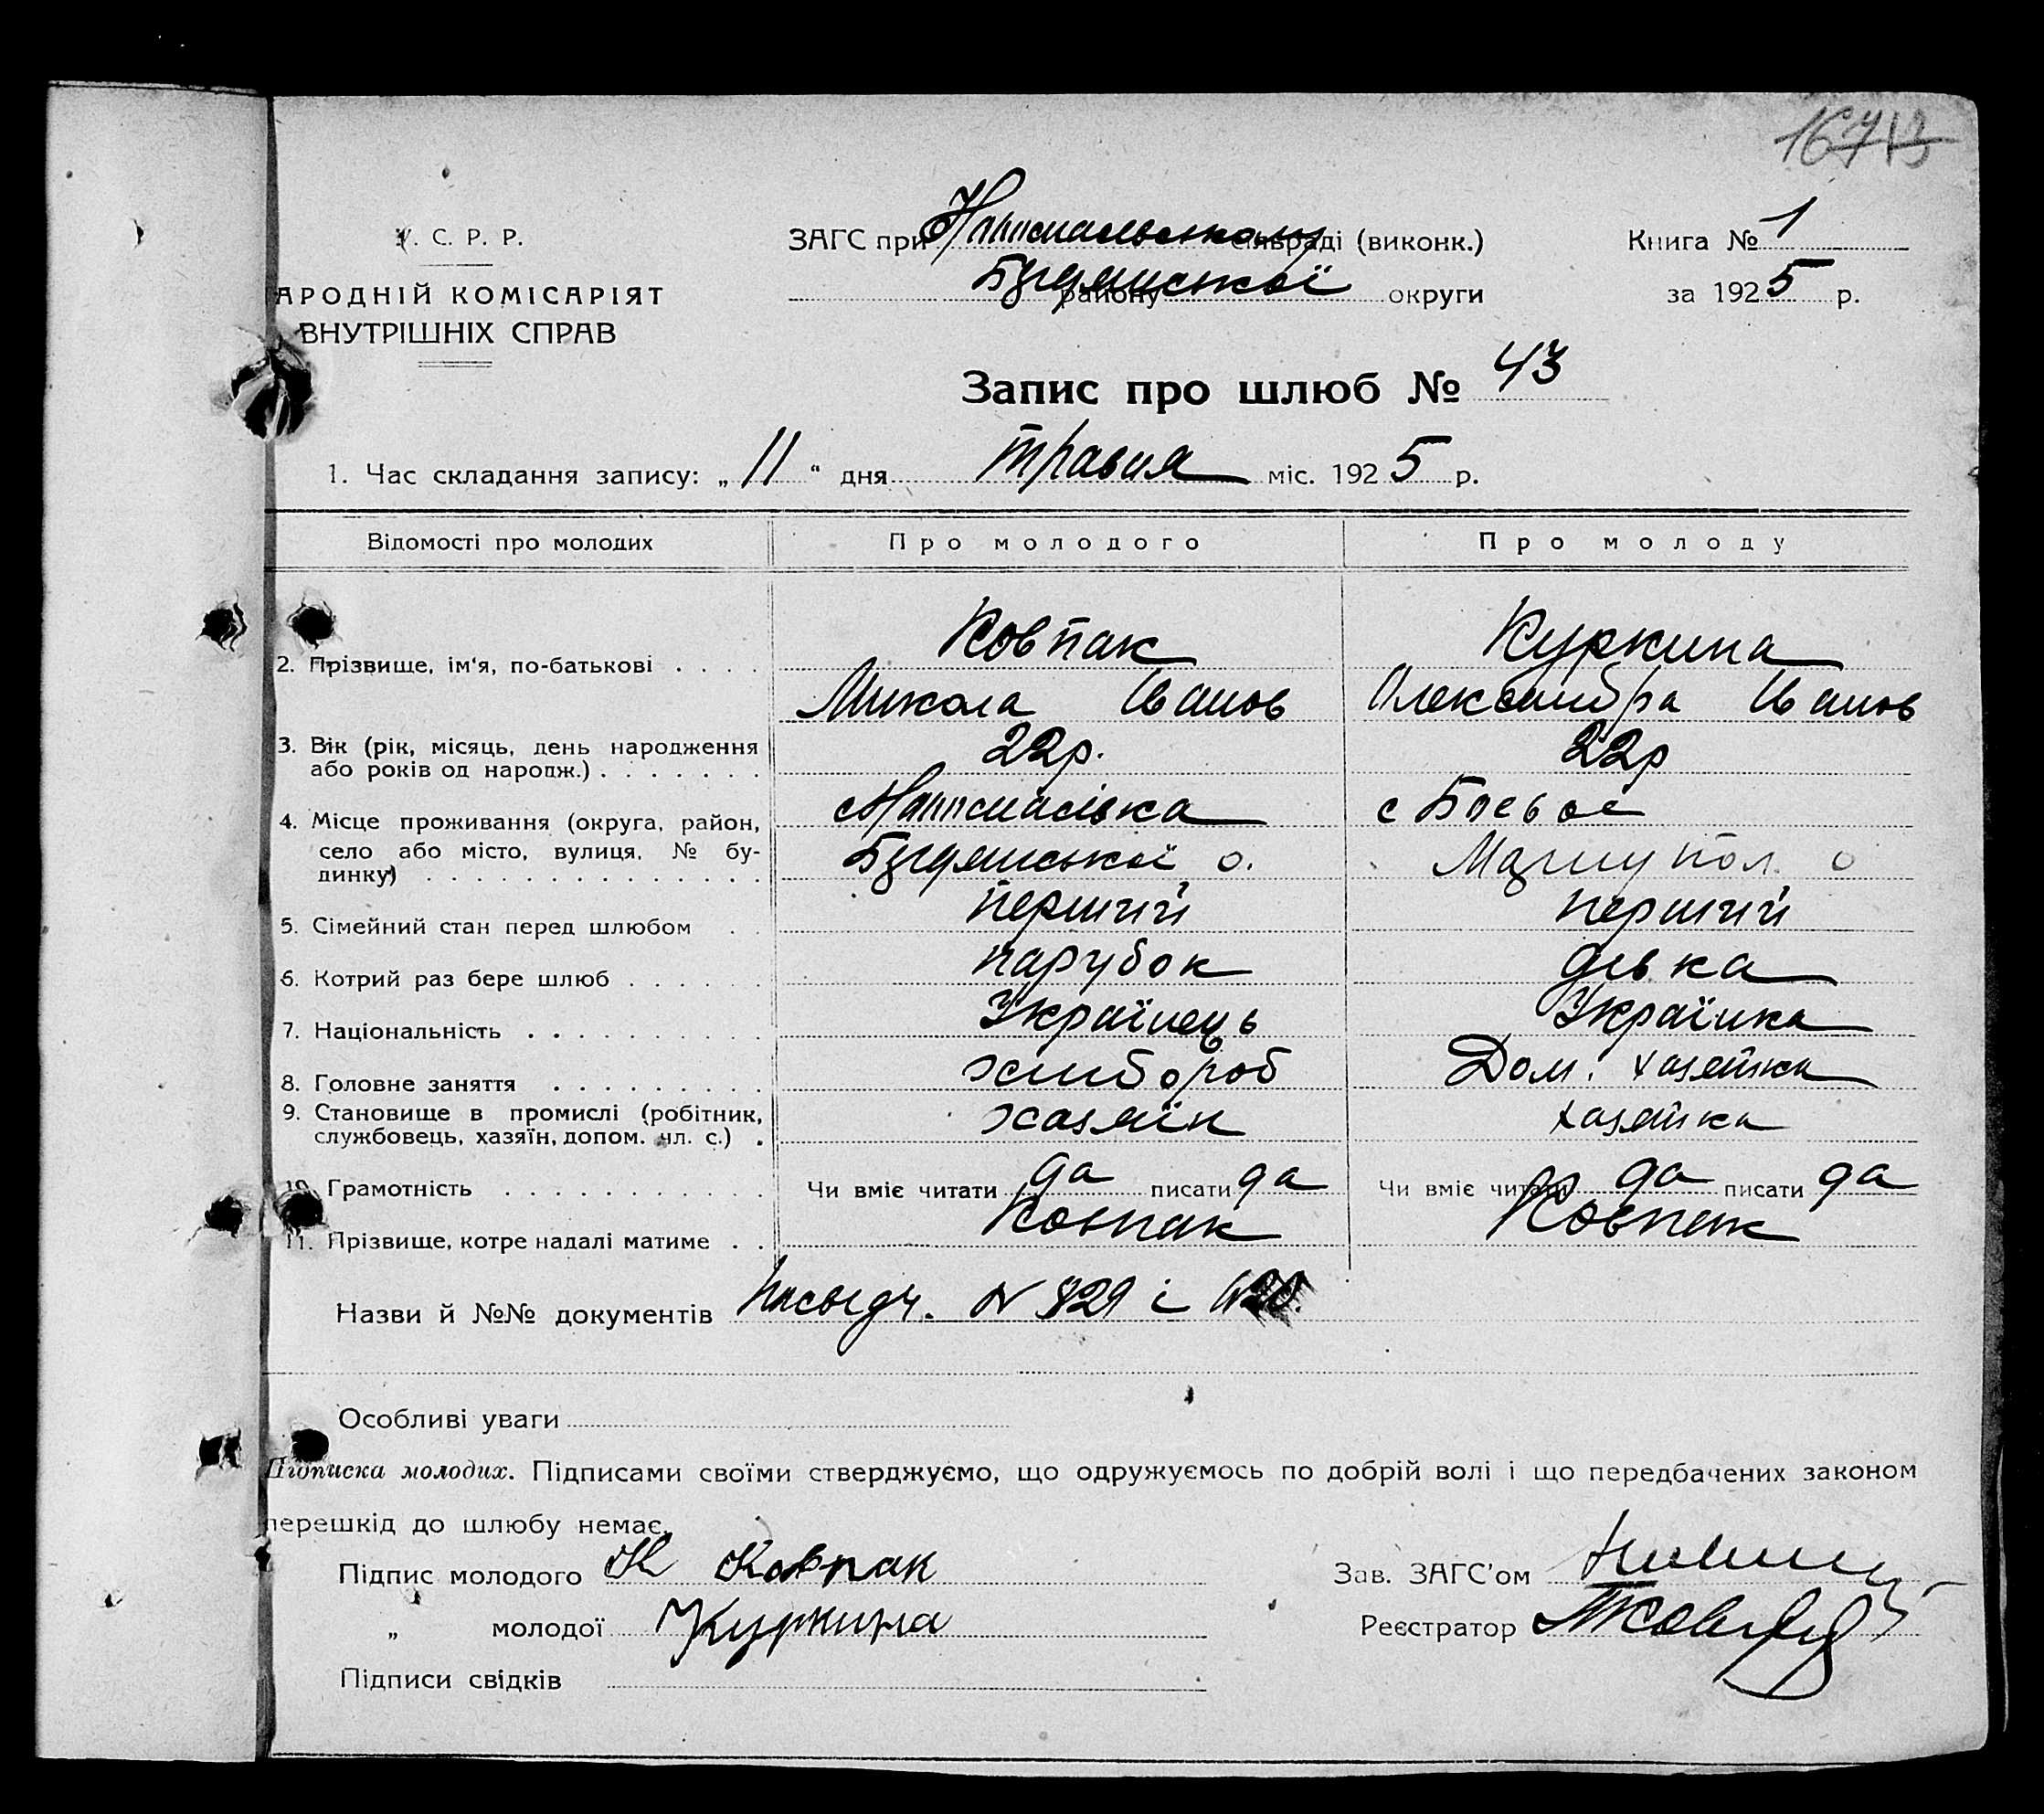 У. С. Р. Р.
АРОДНІЙ КОМІСАРІЯТ
ВНУТРІШНІХ СПРАВ
ЗАГС при сільраді (виконк.)
району округи
Книга № 1
за 1925 р.
Запис про шлюб № 43
1. Час складання запису: „ 11 “ дня травня міс. 1925 р.
Відомості про молодих Про молодого Про молоду
Ковпак Куркина
2. Прізвище, ім'я, по-батькові . . . .
Микола Іванов Олександра Іванов
3. Вік (рік, місяць, день народження
або років од народж.) . . . . . . . 22р. 22р
4. Місце проживання (округа, район, с Боевое
село або місто, вулиця, № бу-
динку) . . . . . . . . . . . . . . о. Маріупол. о
5. Сімейний стан перед шлюбом . . перший перший
6. Котрий раз бере шлюб . . . . . . парубок дівка
7. Національність . . . . . . . . . Українець Українка
8. Головне заняття . . . . . . . . . хлибороб Дом. хазяйка
9. Становище в промислі (робітник,
службовець, хазяїн, допом. чл. с.) . хазяїн хазяйка
10. Грамотність . . . . . . . . . . . Чи вміє читати да писати да Чи вміє читати да писати да
11. Прізвище, котре надалі матиме . . Ковпак Ковпак
Назви й №№ документів Посвідч. № 829 і
Особливі уваги
Підписка молодих. Підписами своїми стверджуємо, що одружуємось по добрій волі і що передбачених законом
перешкід до шлюбу немає.
Підпис молодого Н Ковпак
„ молодої Куркина
Підписи свідків
Зав. ЗАГС'ом
Реєстратор